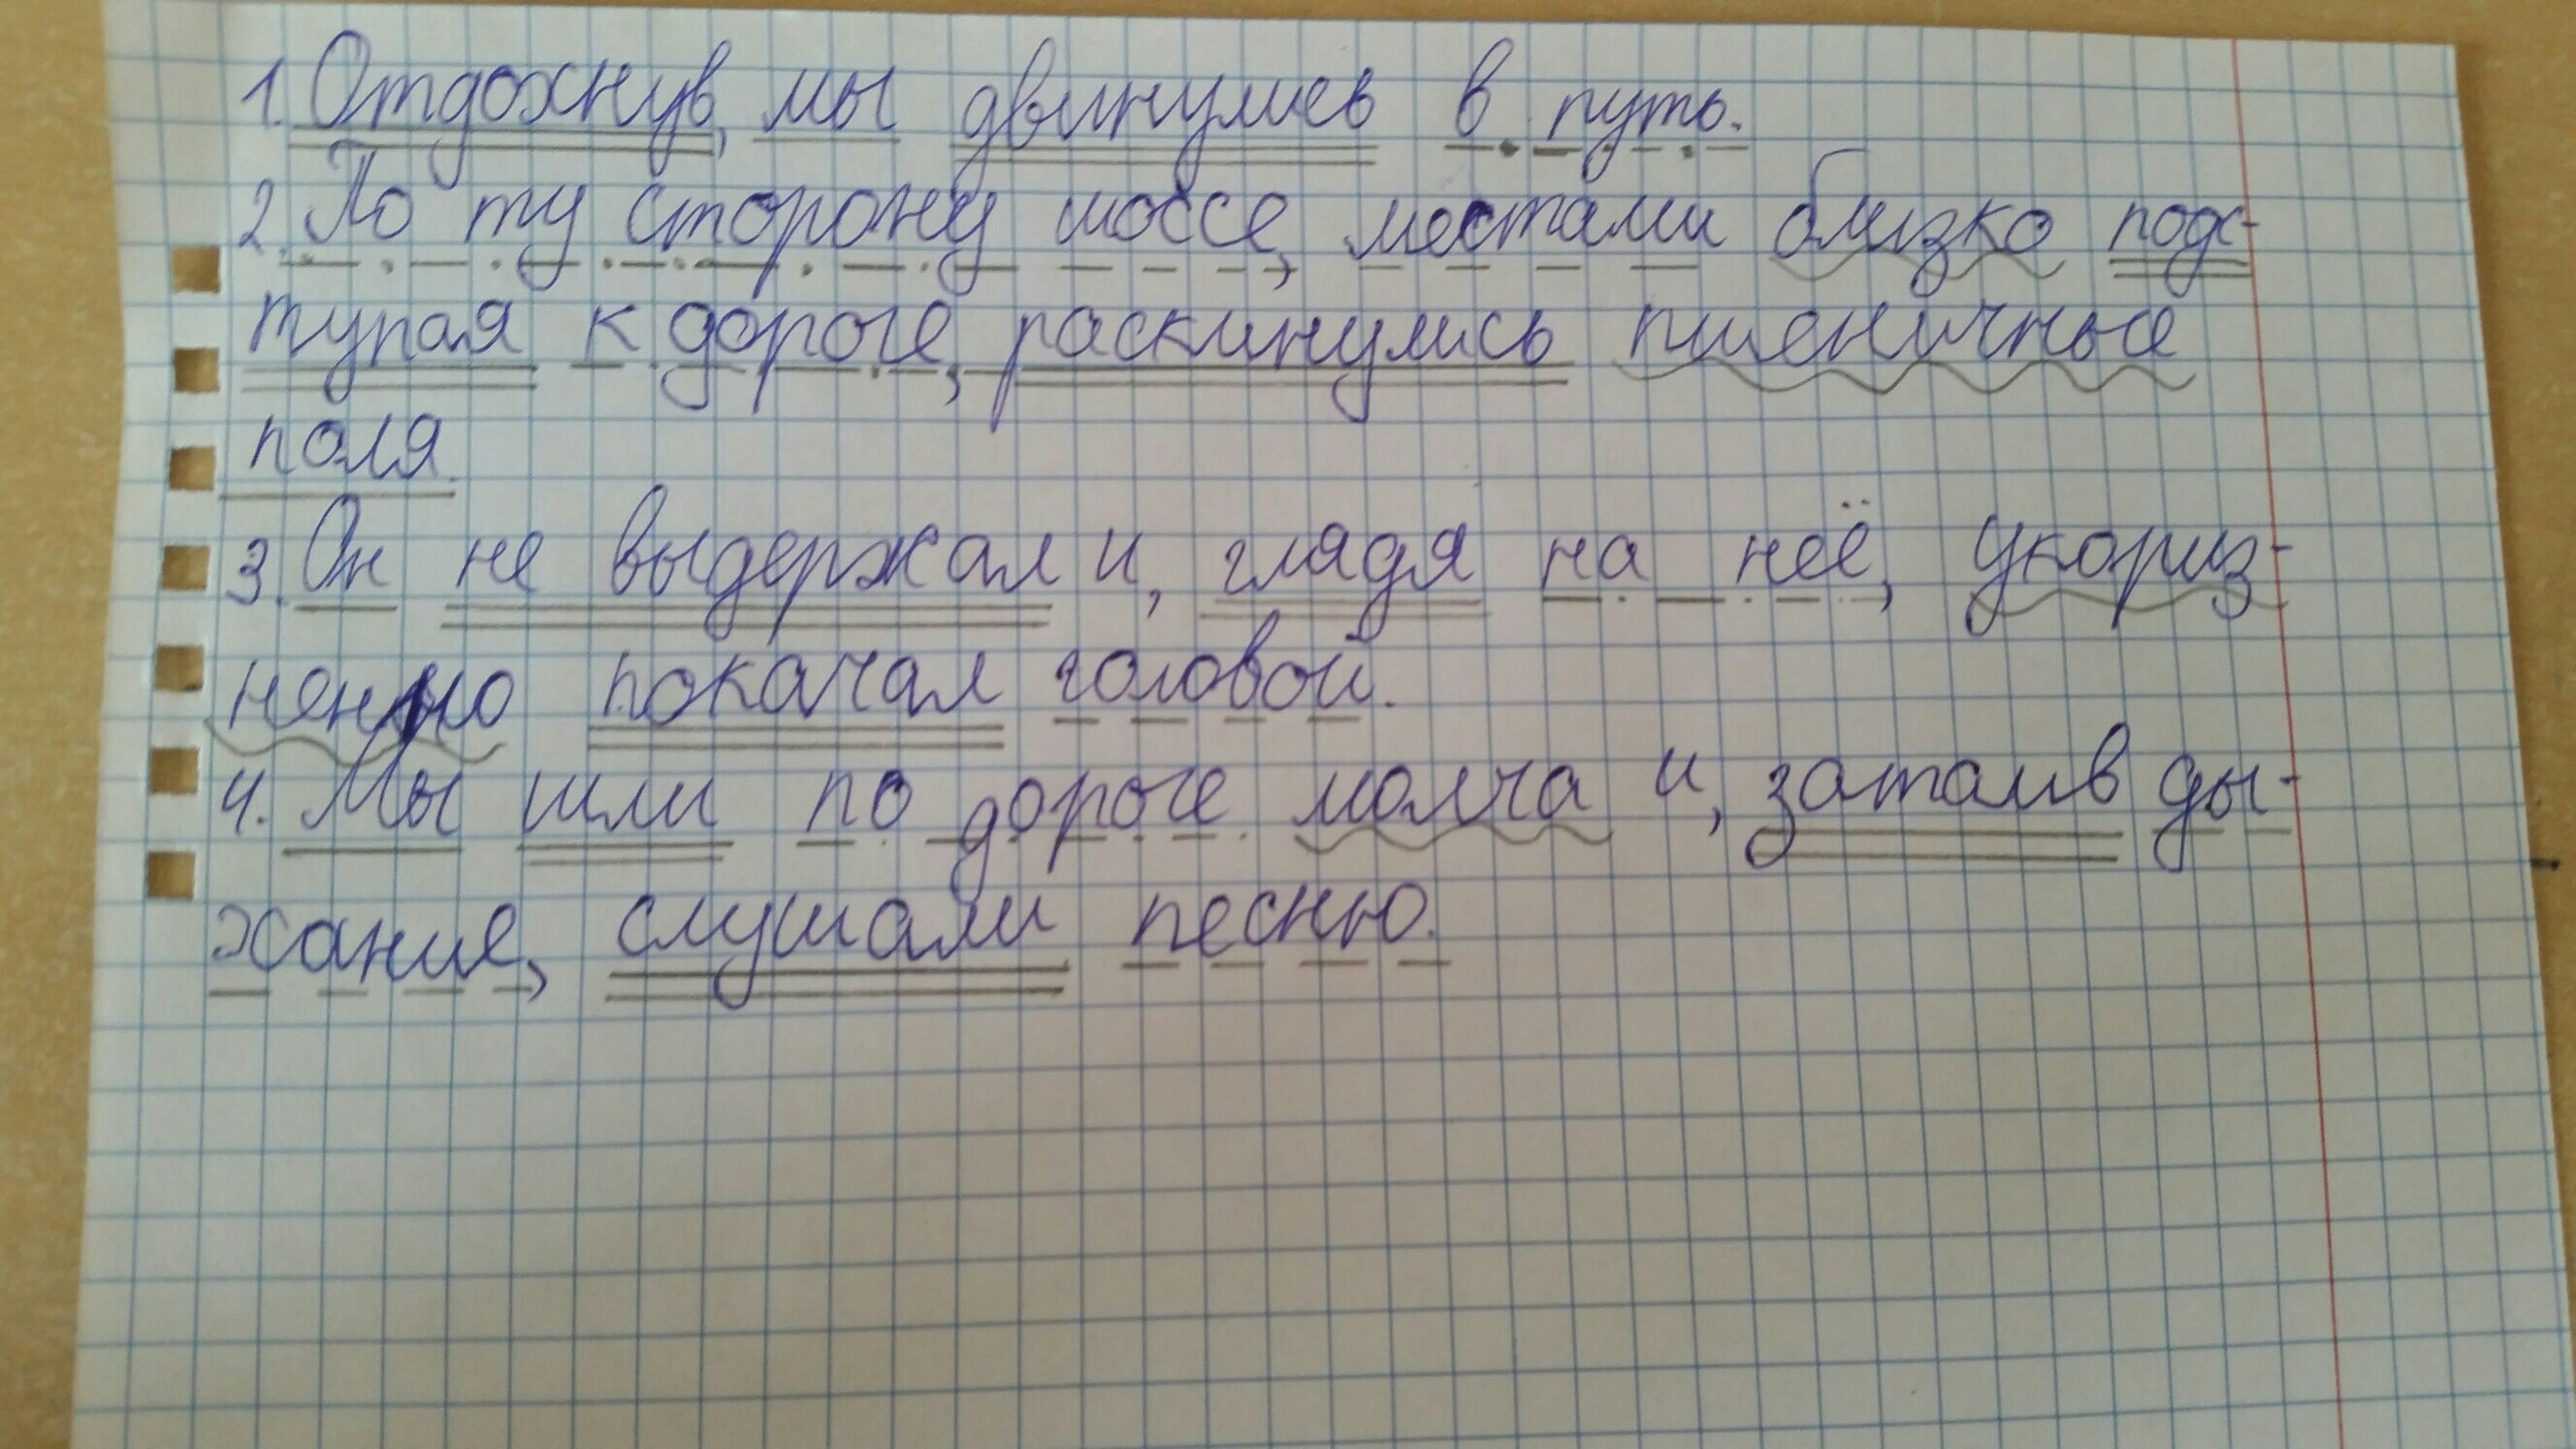 1. Отдохнув, мы двинулись в путь.
2. По ту сторону шоссе, местами близко подс-
тупая к дороге, раскинулись пшеничные
поля.
3. Он не выдержал и, глядя на неё, укориз-
ненно покачал головой.
4. Мы шли по дороге молча и, затаив ды-
хание, слушали песню.